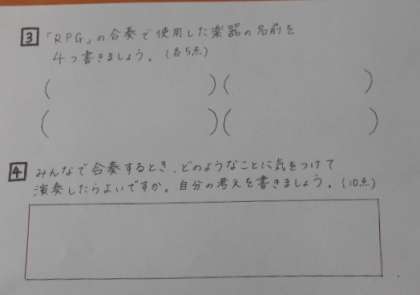 3 「RPG」の合奏で使用した楽器の名前を
4つ書きましょう。(各5点)
( ) ( )
( ) ( )
4 みんなで合奏するとき、どのようなことに気をつけて
演奏したらよいですか。自分の考えを書きましょう。(10点)